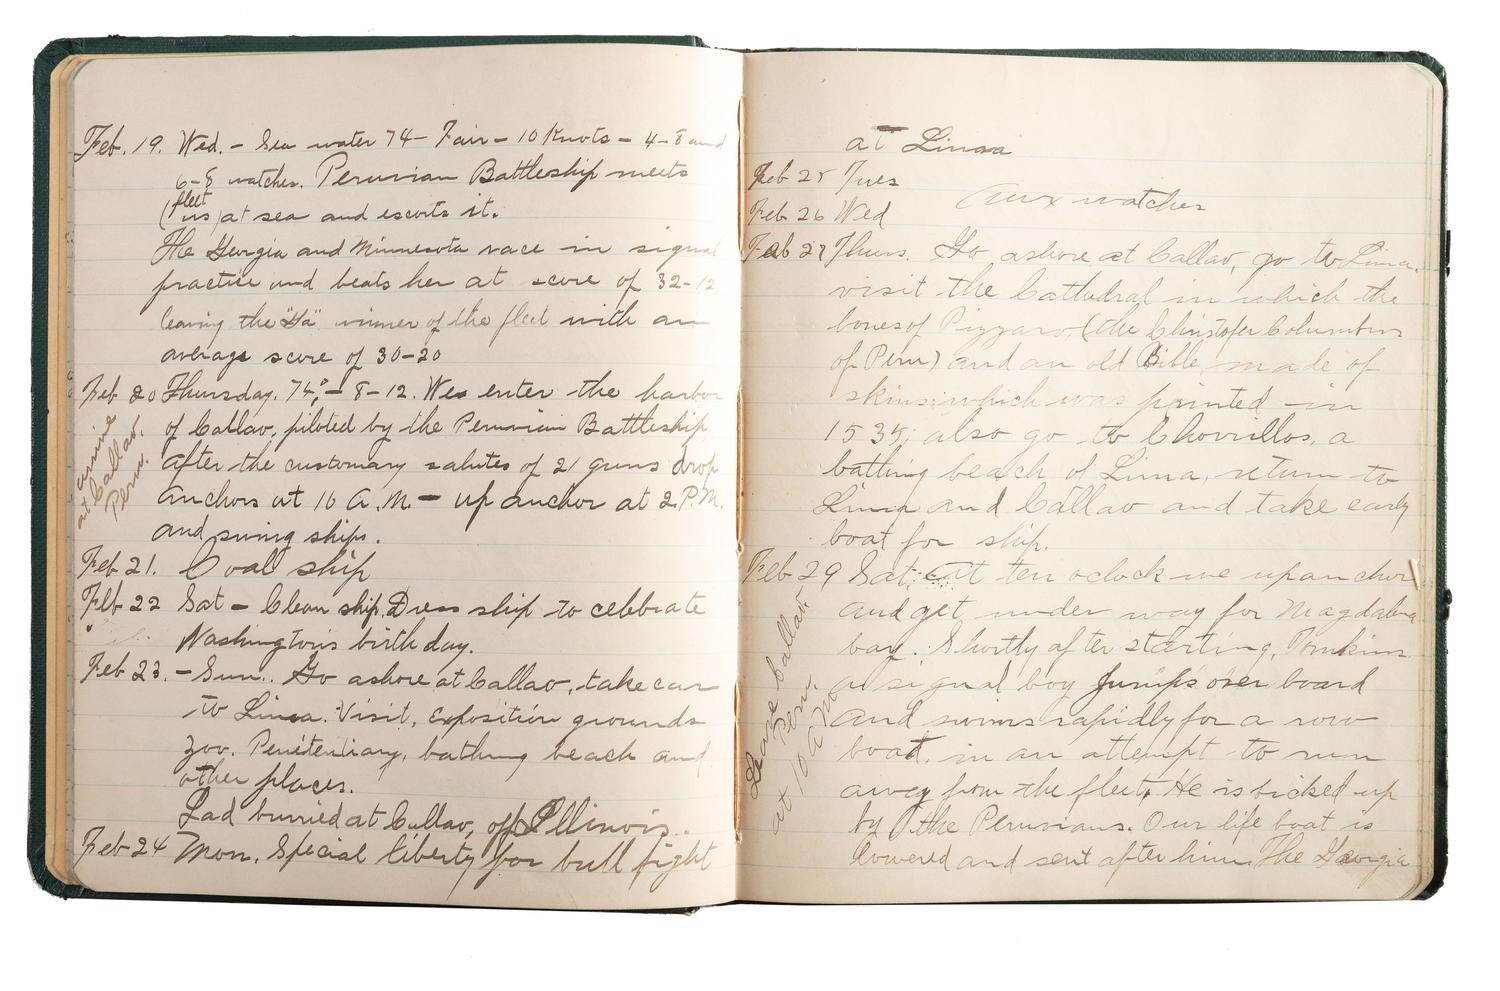 Feb. 19. Wed. - Sea water 74 - Fair - 10 Knots - 4-8 and
6-8 watches. Peruvian Battleship meets
fleet
(us) at sea and escorts it.
The Georgia and Minnesota race in signal
practice and beats her at score of 32-12,
leaving the "Ga" winner of the fleet with an
average score of 30-20
Feb 20 Thursday. 74° - 8-12. We enter the harbor
of Callao, piloted by the Peruvian Battleship,
after the customary salutes of 21 guns drop
anchors at 10 A.M. - up anchor at 2 P.M.
and swing ships.
arrive
at Callao,
Peru.
Feb 21. Coal ship
Feb 22 Sat - Clean ship. Dress ship to celebrate
Washington's birthday.
Feb 23. - Sun. Go ashore at Callao, take car
to Lima. Visit, Exposition grounds
zoo. Penitentiary, bathing beach and
other places.
Lad burried at Callao, off Illinois.
Feb 24 Mon. Special liberty for bull fight
at Lima
Feb 25 Tues
Aux watches
Feb 26 Wed
Feb 27 Thurs. Go ashore at Callao, go to Lima.
visit the Cathedral in which the
bones of Pizzaro, (the Christofer Columbus
of Peru) and an old Bible, made of
skins which was printed in
1535; also go to Chorillos, a
bathing beach of Lima, return to
Lima and Callao and take early
boat for ship.
Feb 29 Sat. At ten oclock we up anchor
and get under way for Magdalena
bay. Shortly after starting, Tomkins
a signal boy jumps over board
and swims rapidly for a row
boat, in an attempt to run
away from the fleet. He is picked up
by the Peruvians. Our life boat is
lowered and sent after him. The Georgia
Leave Callao
Peru.
at 10 A.M.